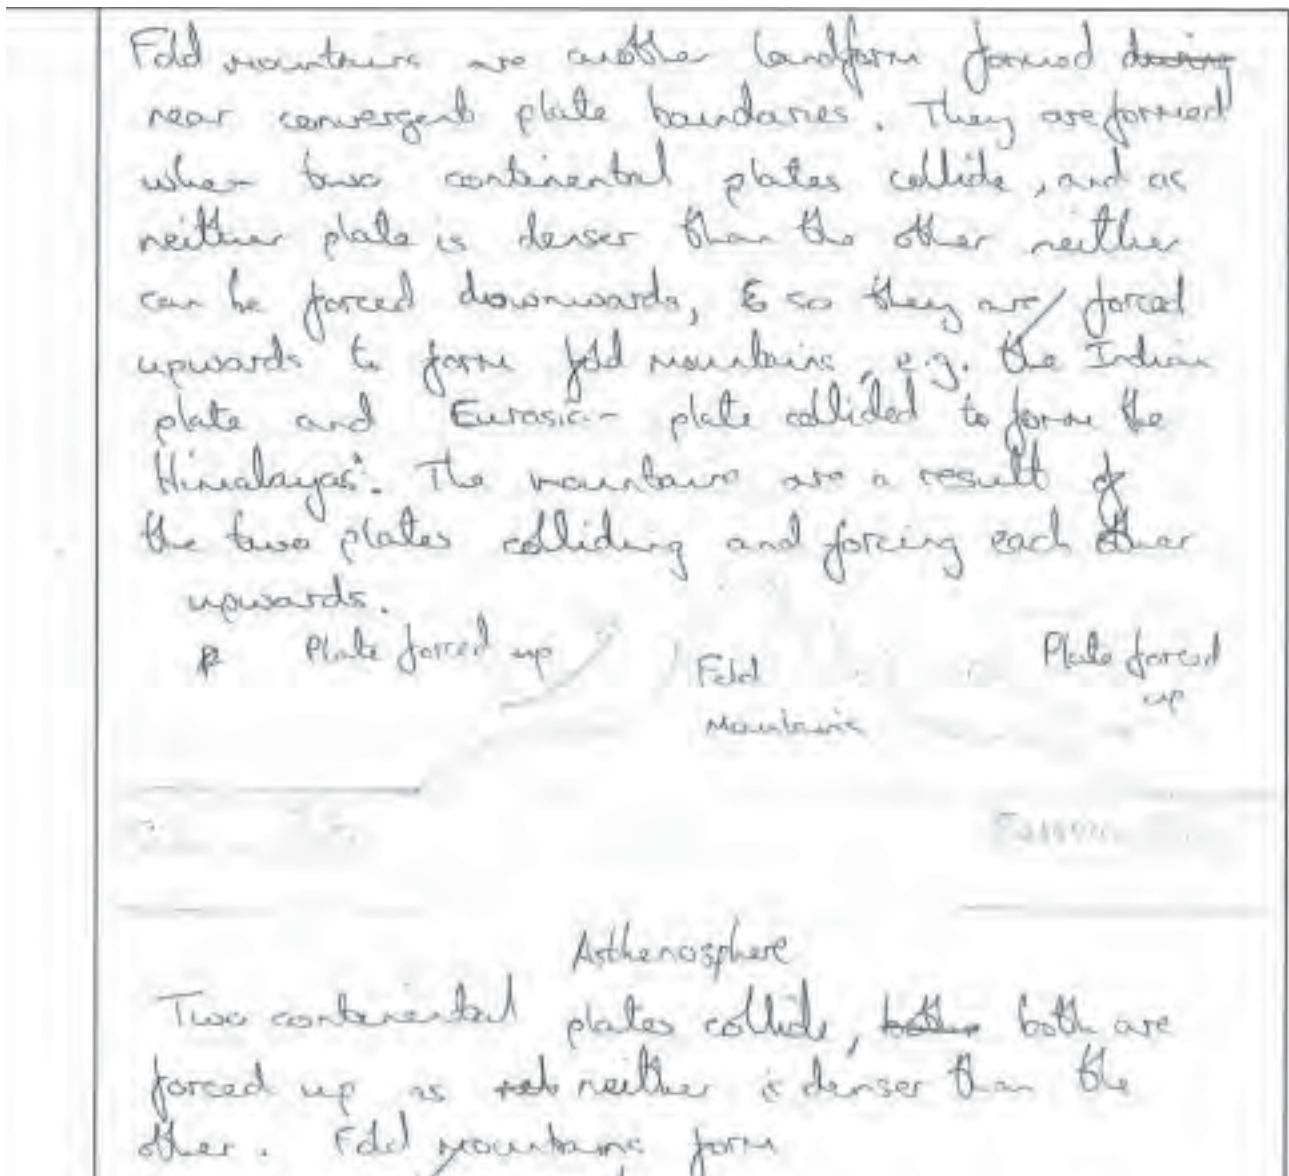 Fold mountains are another landform formed during
near convergent plate boundaries. They are formed
when two continental plates collide, and as
neither plate is denser than the other neither
can be forced downwards, & so they are forced
upwards to form fold mountains, e.g. the Indian
plate and Eurasian plate collided to form the
Himalayas. The mountains are a result of
the two plates colliding and forcing each other
upwards.
Plate forced up
Fold
Mountains
Plate forced
up
Asthenosphere
Two continental plates collide, both are
forced up as neither is denser than the
other. Fold mountains form